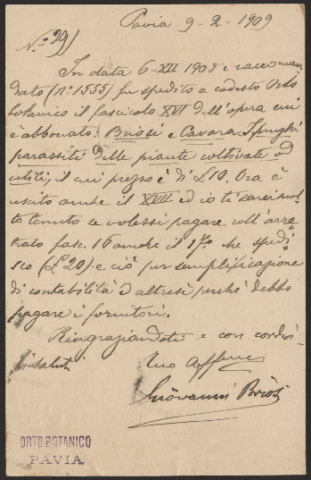 Pavia 9-2-1909
N.° 991
In data 6-XII 1908 e raccoman
dato (n° 1555) fu spedito a codesto Orto
botanico il fascicolo XVI dell'opera cui
è abbonato: Briosi e Cavara I funghi
parassiti delle piante coltivate od
utili, il cui prezzo è di £ 10. Ora è
uscito anche il XVII ed io ti sarei mol
to tenuto se volessi pagare coll'arre
trato fasc. 16 anche il 17° che spedi
sco (£ 20) e ciò per semplificazione
di contabilità e altresì perchè debbo
pagare i fornitori.
Ringraziandoti e con cordia
li saluti
Tuo Aff.
Giovanni Briosi
ORTO BOTANICO
PAVIA